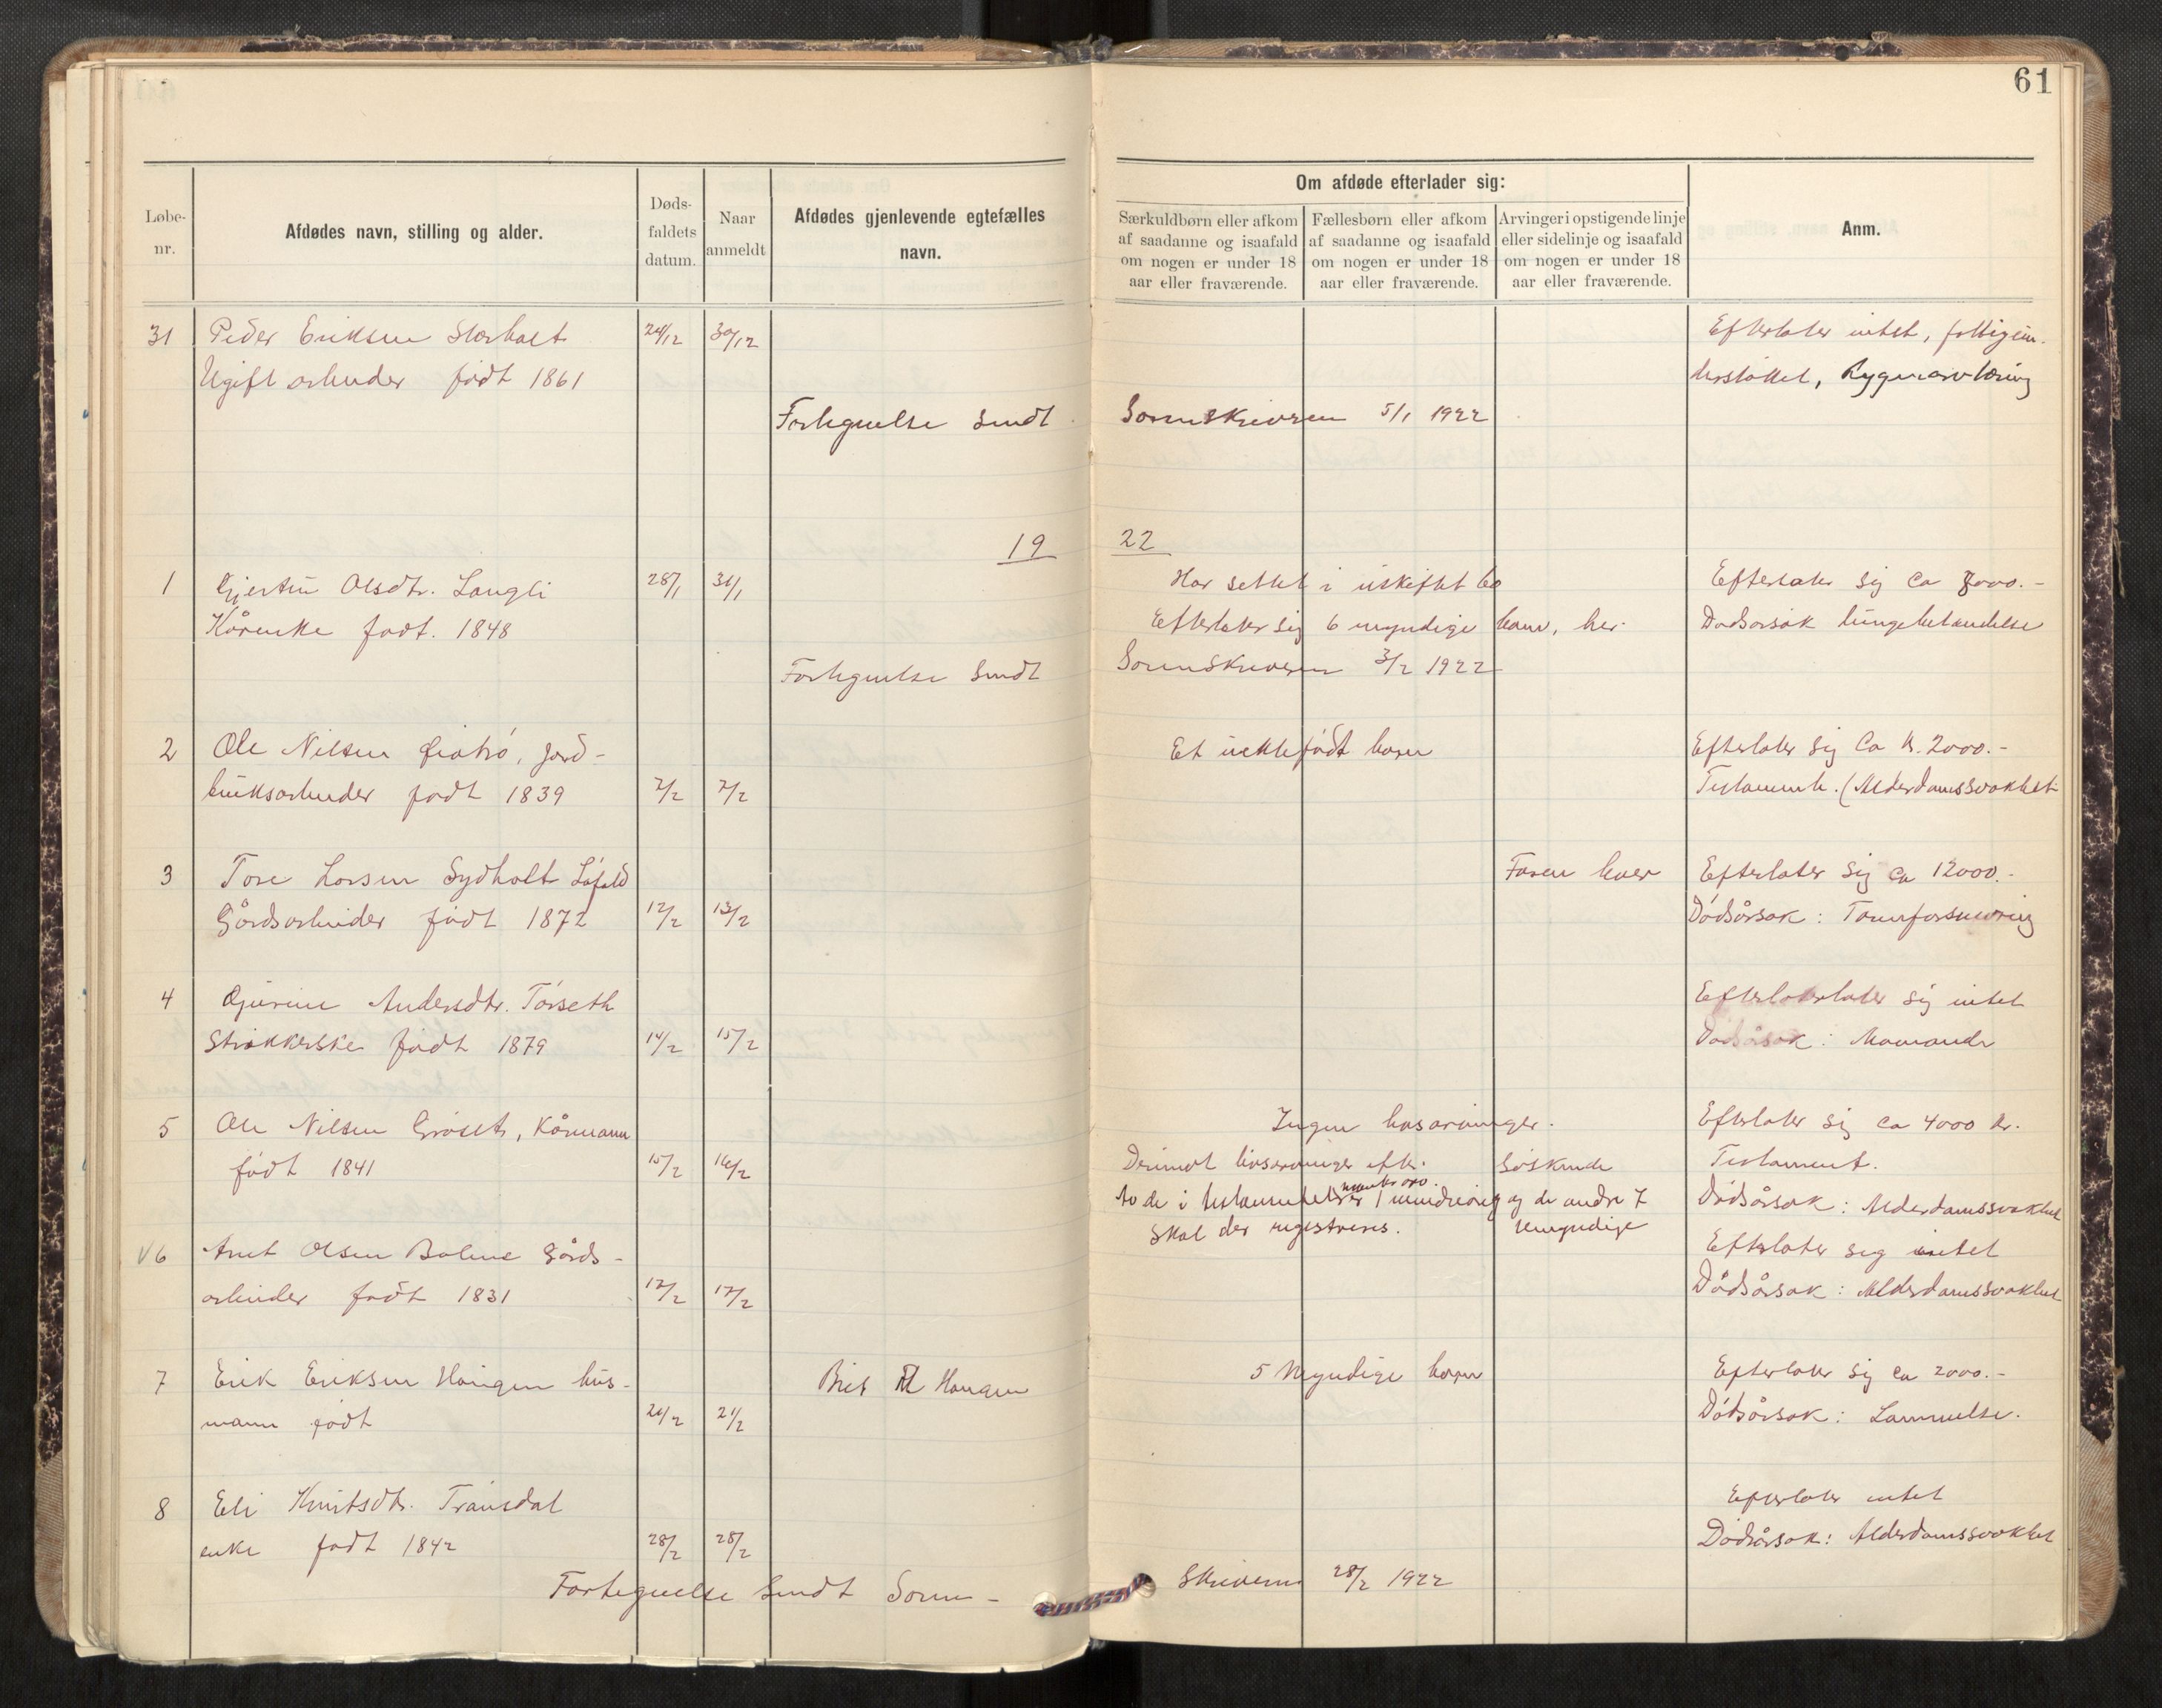 61
Løbe-
nr.
Afdødes navn, stilling og alder.
Døds-
faldets
datum.
Naar
anmeldt
Afdødes gjenlevende egtefælles
navn.
Om afdøde efterlader sig:
Særkuldbørn eller afkom
af saadanne og isaafald
om nogen er under 18
aar eller fraværende.
Fællesbørn eller afkom
af saadanne og isaafald
om nogen er under 18
aar eller fraværende.
Arvinger i opstigende linje
eller sidelinje og isaafald
om nogen er under 18
aar eller fraværende.
Anm.
31 Peder Eriksen 24/12 30/12 Efterlater intet,
Ugift arbeider født 1861
Fortegnelse sendt Sorenskriveren 5/1 1922
19 22
1 Olsdtr. Langli 28/1 31/1 Har sittet i uskiftet bo Efterlater sig ca
Kårenke født. 1848 Efterlater sig 6 myndige barn, her Dødsårsak lungebetændelse
Fortegnelse sendt Sorenskriveren 3/2 1922
2 Ole Nilsen jord- Et uektefødt barn Efterlater sig Ca kr. 2000.-
bruksarbeider født 1839 7/2 7/2 Testamente. (Alderdomssvakhet
3 Tore Larsen Sydhalt Faren lever Efterlater sig ca 12000.-
Gårdsarbeider født 1872 12/2 13/2 Dødsårsak:
4 Andersdtr. Tørseth Efterlaterlater sig intet
Strikkerske født 1879 14/2 15/2 Dødsårsak:
5 Ole Nilsen Grøset, Kårmann Ingen livsarvinger. Efterlater sig ca 4000 kr.
født 1841 15/2 16/2 Derimot livsarvinger efter søskende Testament.
to de i testamentet er 1 mindreårig og de andre 7 Dødsårsak: Alderdomssvakhet
skal der registreres. myndige
6 Arnt Olsen Gårds- Efterlater seg intet
arbeider født 1831 17/2 17/2 Dødsårsak: Alderdomssvakhet
7 Erik Eriksen Haugen hus- Haugen 5 Myndige barn Efterlater sig ca 2000.-
mann født 20/2 21/2 Dødsårsak: Lammelse.
8 Eli Knutsdtr. Transdal Efterlater intet
enke født 1842 28/2 28/2 Dødsårsak: Alderdomssvakhet
Fortegnelse sendt Soren- skriveren 28/2 1922